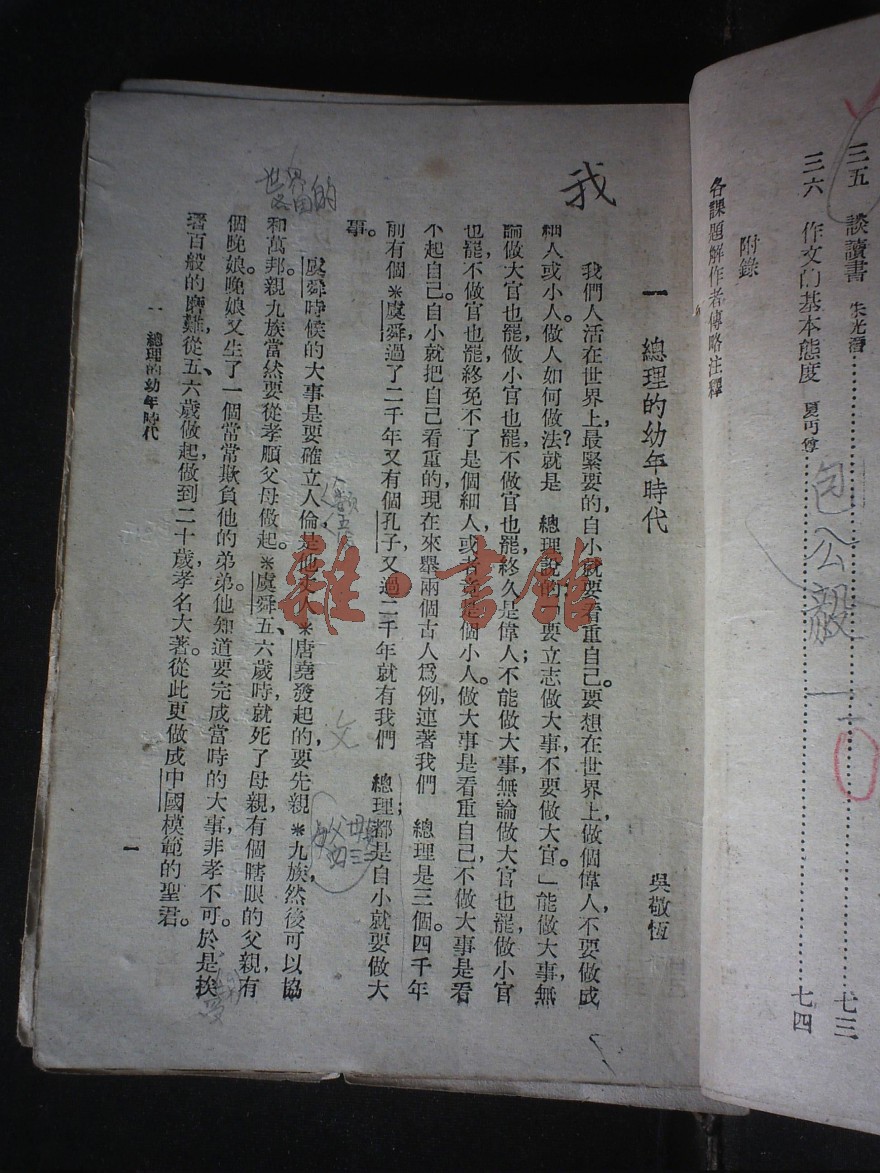 三五 談讀書 朱光潛 七三
三六 作文的基本態度 夏丏尊 七四
附錄
各課題解作者傳略注釋
包公毅
我
一 總理的幼年時代
吳敬恆
我們人活在世界上，最緊要的，自小就要看重自己。要想在世界上，做個偉人，不要做成
細人或小人。做人如何做法？就是 總理說的「要立志做大事，不要做大官。」能做大事，無
論做大官也罷，做小官也罷，不做官也罷，終久是偉人；不能做大事，無論做大官也罷，做小官
也罷，不做官也罷，終免不了是個細人，或者竟是個小人。做大事是看重自己，不做大事是看
不起自己。自小就把自己看重的，現在來舉兩個古人爲例，連著我們 總理是三個。四千年
前有個＊虞舜，過了二千年又有個孔子，又過二千年就有我們 總理；都是自小就要做大
事。
虞舜時候的大事是要確立人倫，是他丈人＊唐堯發起的，要先親＊九族，然後可以協
和萬邦。親九族當然要從孝順父母做起。＊虞舜五、六歲時，就死了母親，有個瞎眼的父親，有
個晚娘，晚娘又生了一個當當欺負他的弟弟。他知道要完成當時的大事，非孝不可。於是挨
著百般的磨難，從五、六歲做起，做到二十歲，孝名大著。從此更做成中國模範的聖君。
一 總理的幼年時代
一
世界
的
文
雜·書館